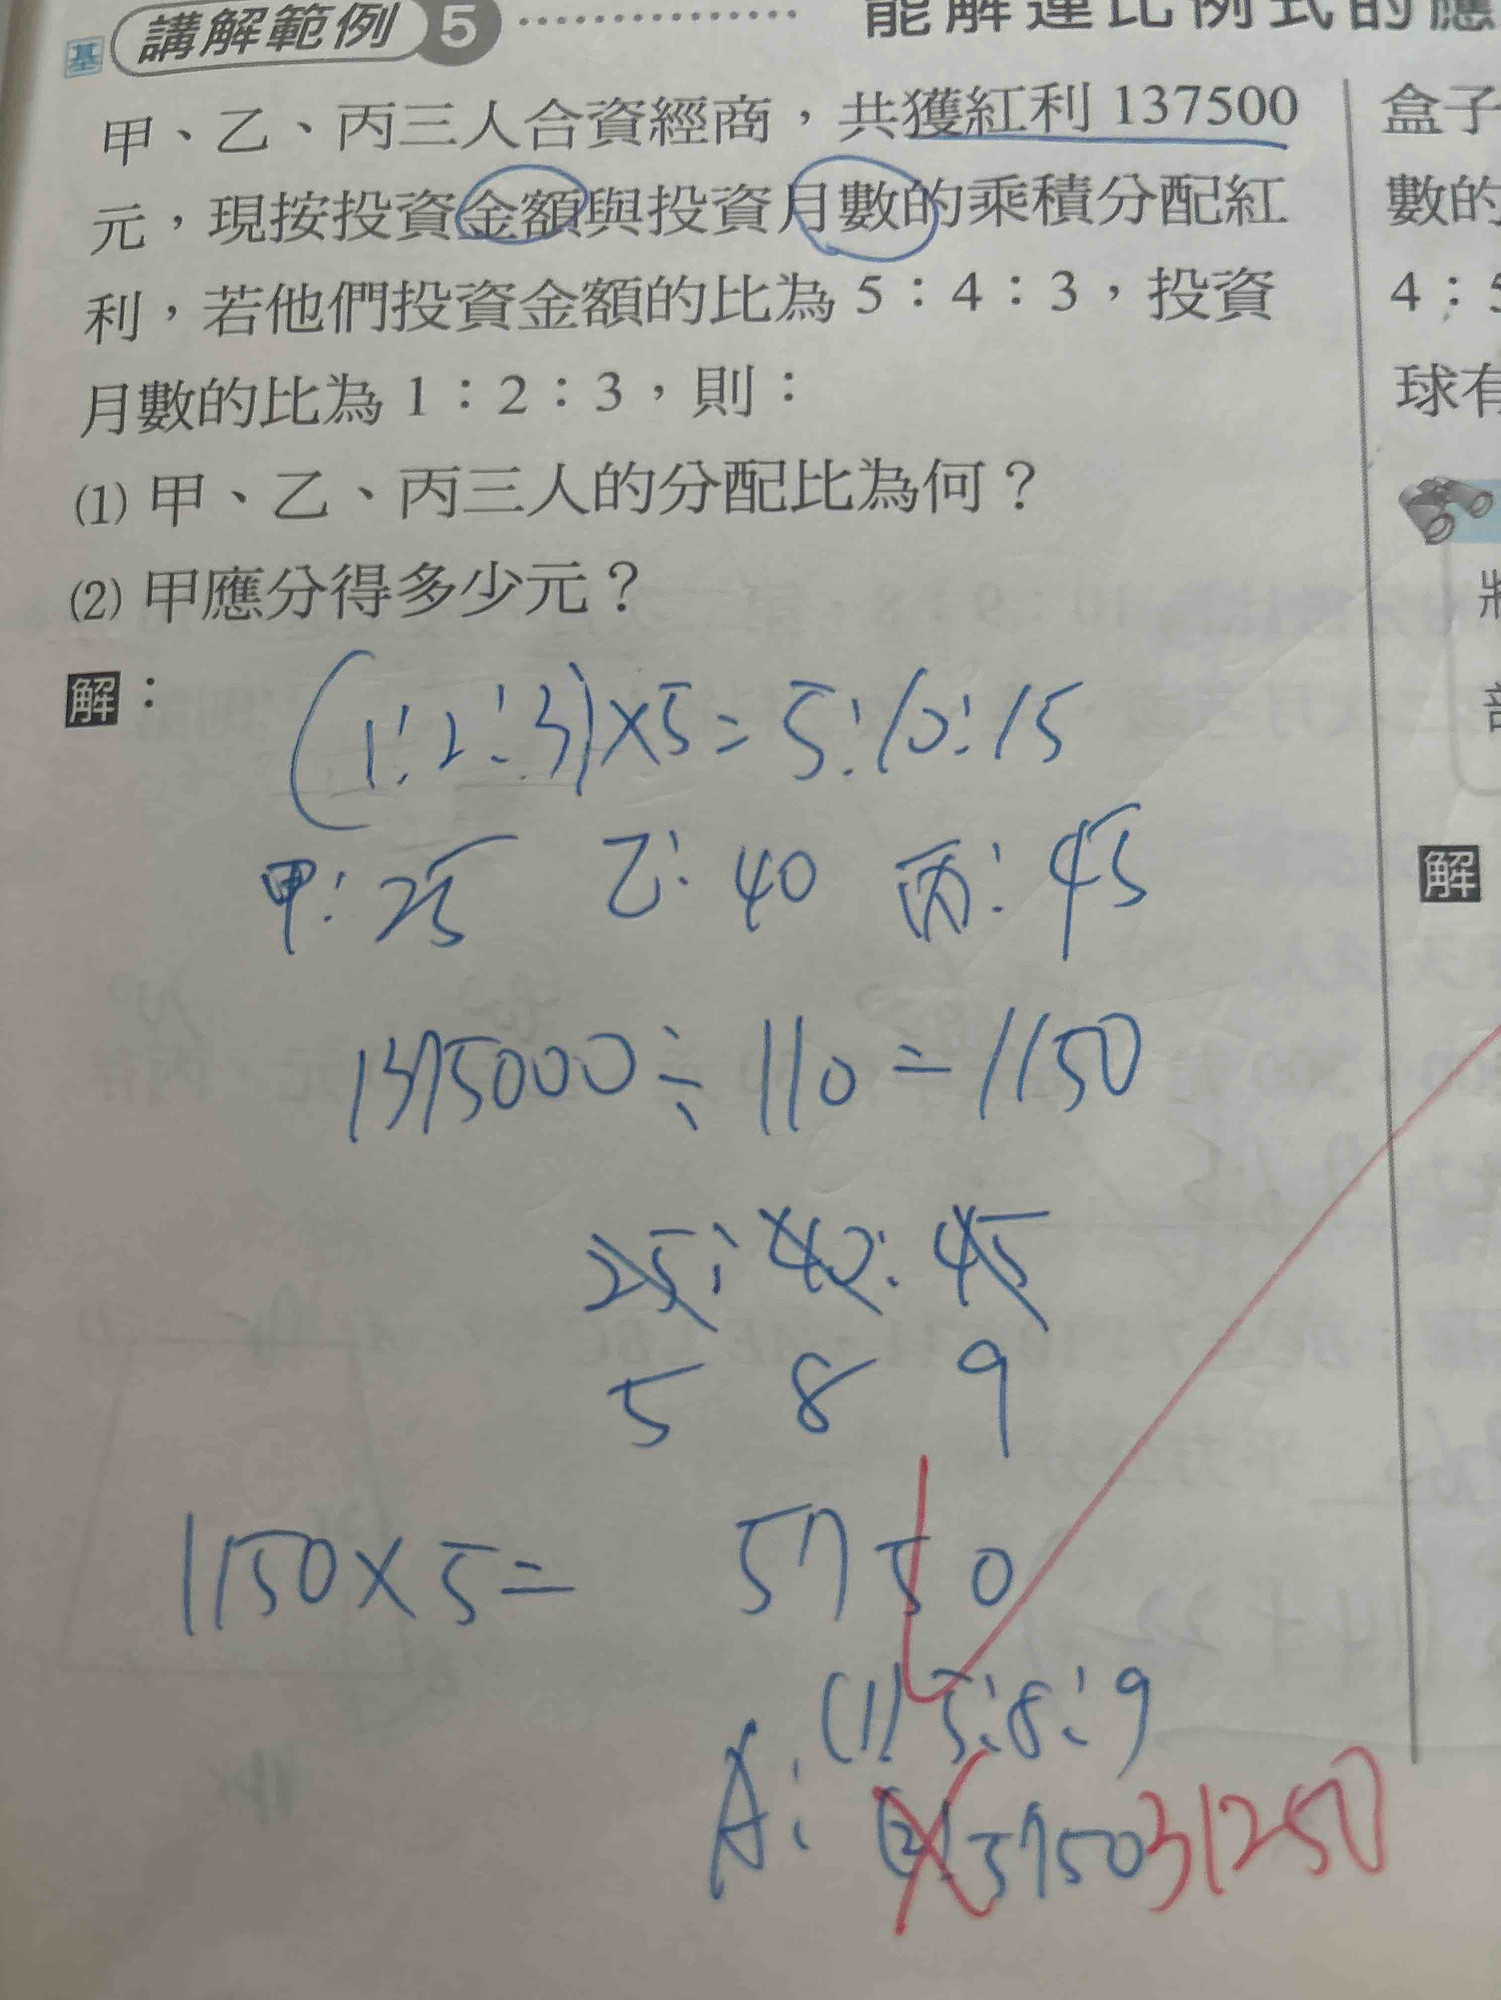 基 講解範例 5 能解連比例式的應
甲、乙、丙三人合資經商，共獲紅利 137500
元，現按投資金額與投資月數的乘積分配紅
利，若他們投資金額的比為 5：4：3，投資
月數的比為 1：2：3，則：
(1) 甲、乙、丙三人的分配比為何？
(2) 甲應分得多少元？
解：
(1:2:3)×5=5:10:15
甲:25 乙:40 丙:45
1375000÷110=1150
25:40:45
5 8 9
1150×5= 5750
A: (1) 5:8:9
(2) 5750 31250
盒子
數的
4：5
球有
解